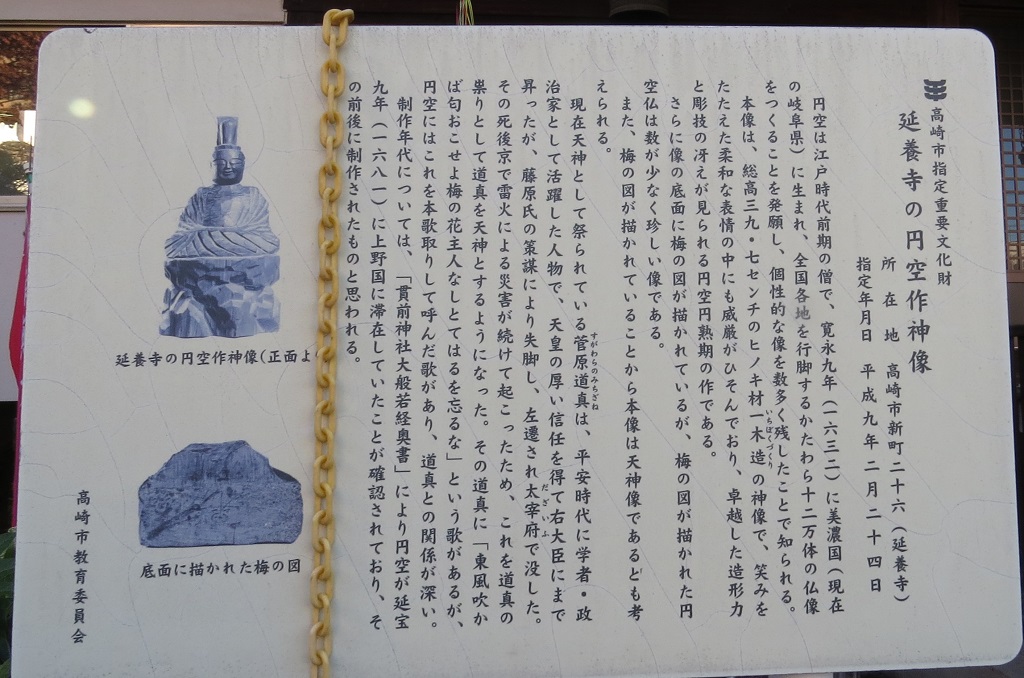 高崎市指定重要文化財
延養寺の円空作神像
所在地 高崎市新町二十六（延養寺）
指定年月日 平成九年二月二十四日
円空は江戸時代前期の僧で、寛永九年（一六三二）に美濃国（現在
の岐阜県）に生まれ、全国各地を行脚するかたわら十二万体の仏像
をつくることを発願し、個性的な像を数多く残したことで知られる。
本像は、総高三九・七センチのヒノキ材一木造の神像で、笑みを
いちぼくづくり
たたえた柔和な表情の中にも威厳がひそんでおり、卓越した造形力
と彫技の冴えが見られる円空円熟期の作である。
さらに像の底面に梅の図が描かれているが、梅の図が描かれた円
空仏は数が少なく珍しい像である。
また、梅の図が描かれていることから本像は天神像であるとも考
えられる。
現在天神として祭られている菅原道真は、平安時代に学者・政
すがわらのみちざね
治家として活躍した人物で、天皇の厚い信任を得て右大臣にまで
昇ったが、藤原氏の策謀により失脚し、左遷され太宰府で没した。
だざいふ
その死後京で雷火による災害が続けて起こったため、これを道真の
祟りとして道真を天神とするようになった。その道真に「東風吹か
ば匂おこせよ梅の花主人なしとてはるを忘るな」という歌があるが、
円空にはこれを本歌取りして呼んだ歌があり、道真との関係が深い。
制作年代については、「貫前神社大般若経奥書」により円空が延宝
九年（一六八一）に上野国に滞在していたことが確認されており、そ
の前後に制作されたものと思われる。
延養寺の円空作神像(正面よ
底面に描かれた梅の図
高崎市教育委員会